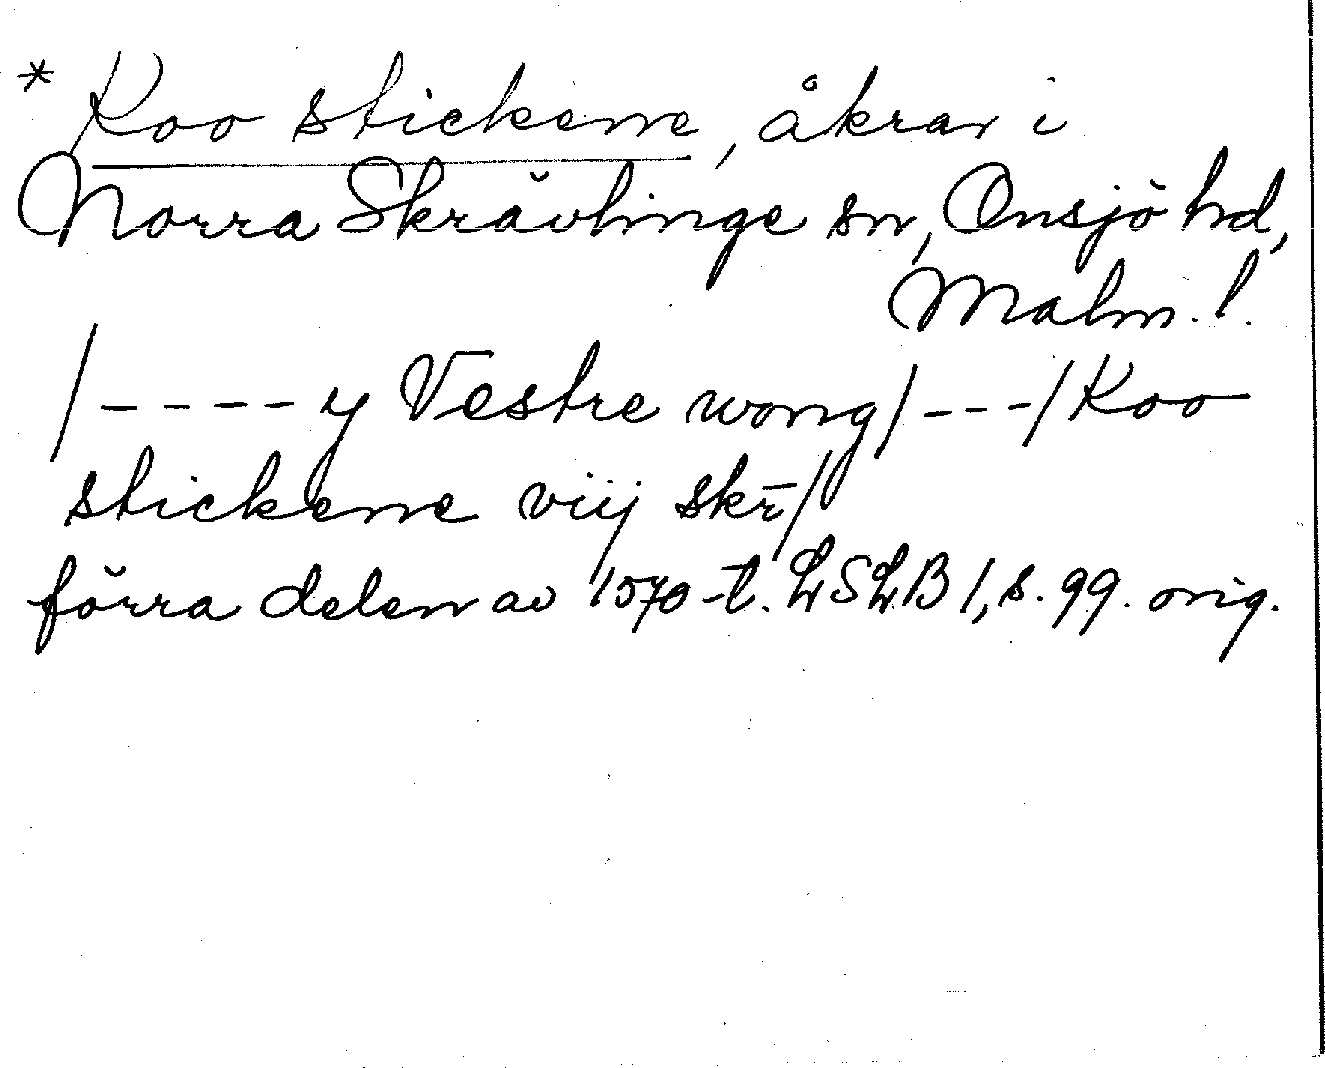 * Koo stickene, åkrar i
Norra Skrävlinge sn, Onsjö hd,
Malm. l.
/----y Vestre wong/---/Koo
stickene viij skr̄/
förra delen av 1570-t. LSLB 1, s. 99. orig.